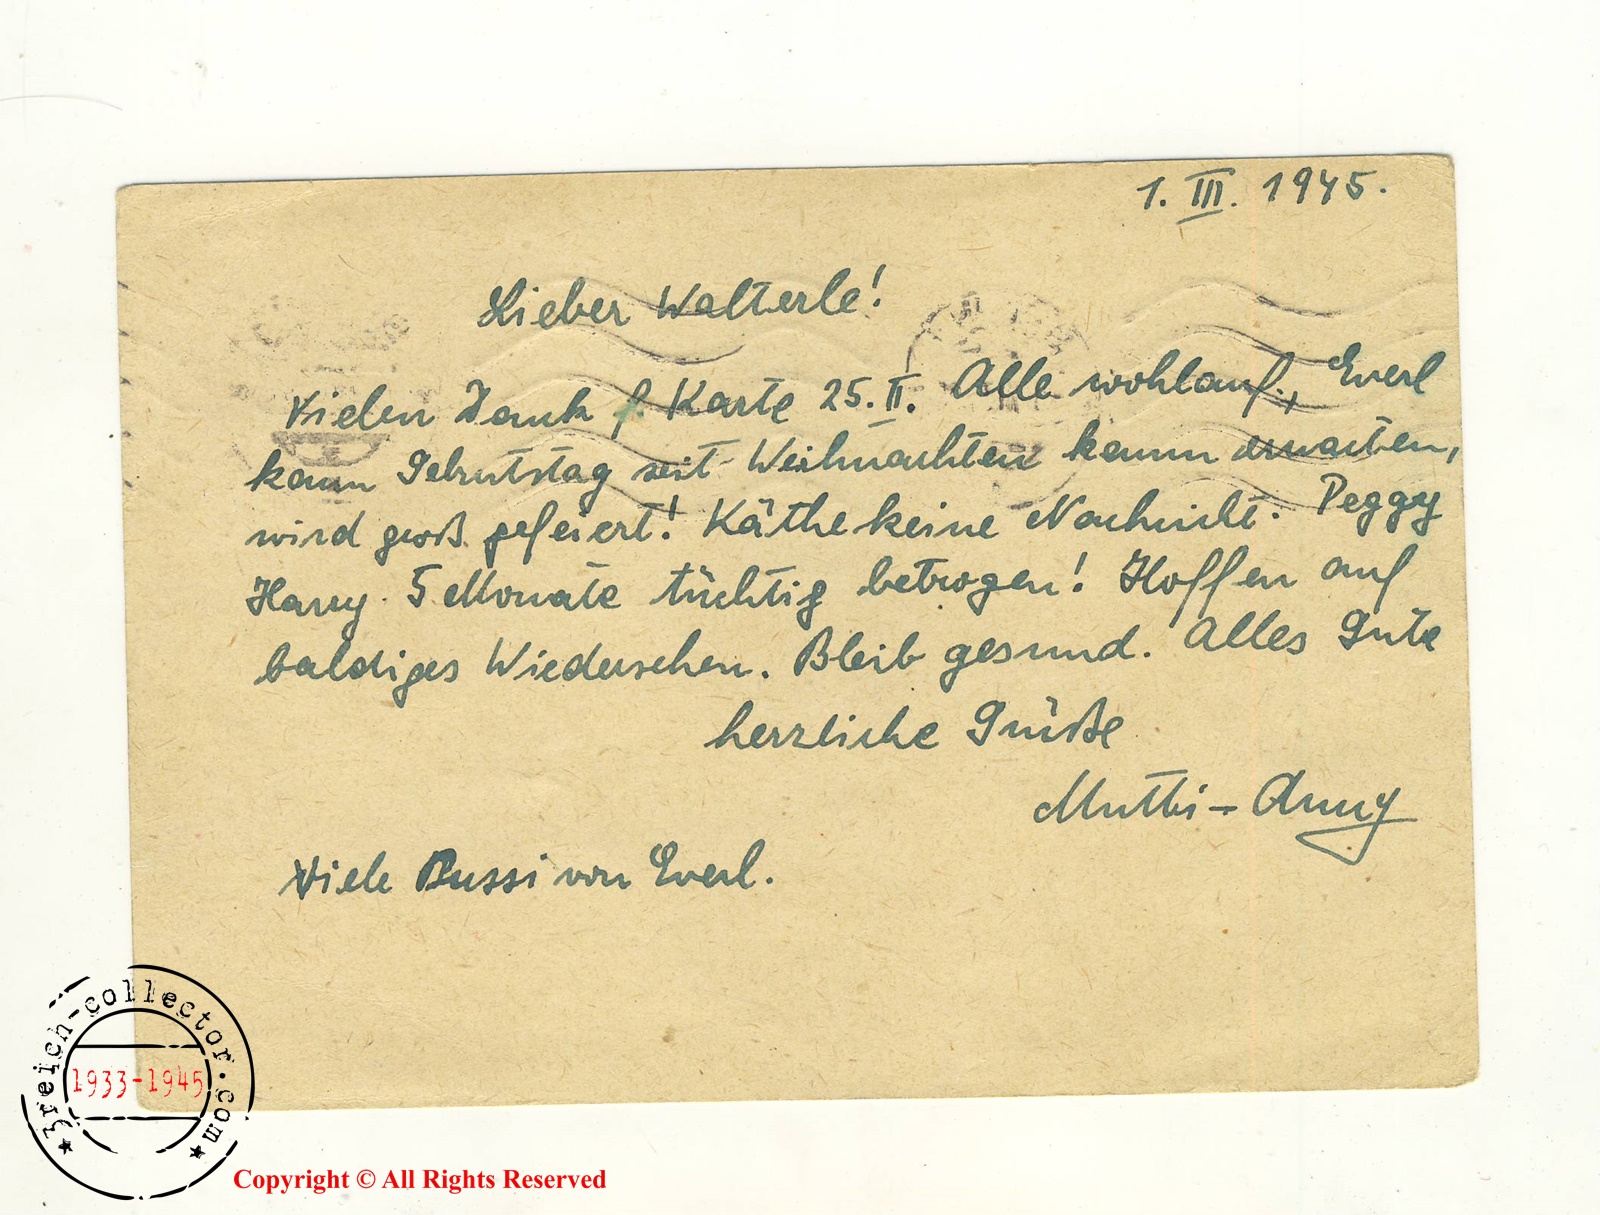 1. III. 1945.
Lieber Walterle!
Vielen Dank f. Karte 25.II. Alle wohlauf, Everl
kann Geburtstag seit Weihnachten kaum erwarten,
wird groß gefeiert! Käthe keine Nachricht. Peggy
Harry 5 Monate tüchtig betrogen! Hoffen auf
baldiges Wiedersehen. Bleib gesund. Alles Gute
herzliche Grüße
Mutti - Anny
Viele Bussi von Everl.
3reich-collector.com
1933-1945
Copyright © All Rights Reserved